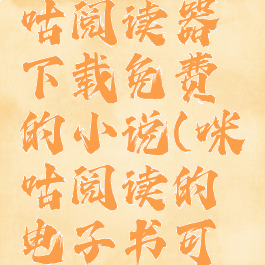 咕阅读器
下载免费
的小说(咪
咕阅读的
电子书可